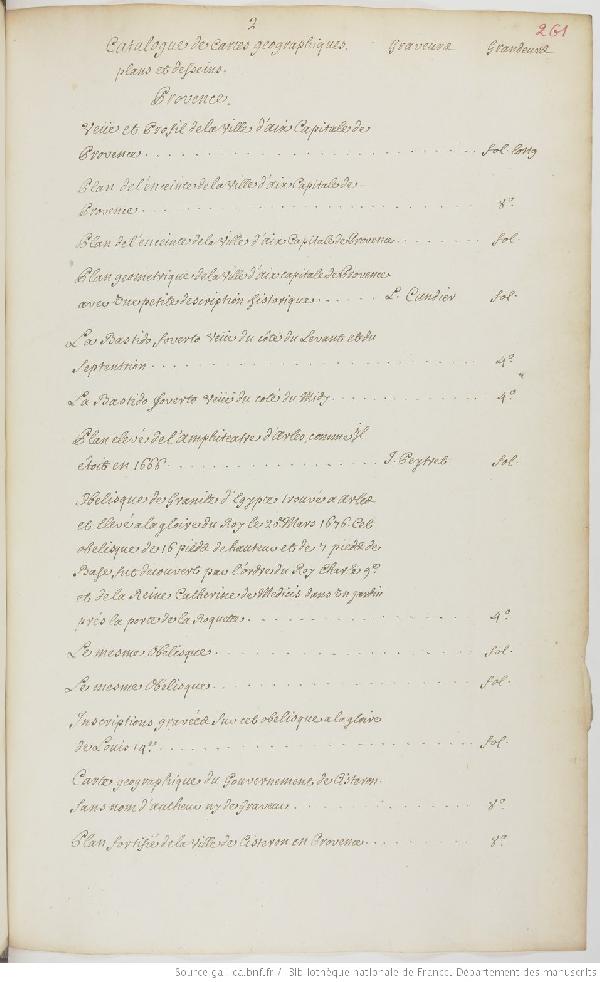 2
261
Catalogue de Cartes geographiques, Graveurs Grandeurs
plans et desseins.
Provence.
Veüe et Profil de la Ville d'aix Capitale de
Provence fol. long
Plan de l'enceinte de la Ville d'aix Capitale de
Provence 8º
Plan de l'enceinte de la Ville d'aix Capitale de Provence fol.
Plan geometrique de la Ville d'aix capitale de Provence
avec une petite description historique L. Cundier fol.
La Bastide forte Veüe du côté du Levant et du
Septentrion 4º
La Bastide forte Veüe du coté du Midy 4º
Plan elevé de l'Amphiteatre d'Arles, comme il
étoit en 1666 J. Peytret fol.
Obelisque de Granite d'Egypte trouvé a Arles
et Elevé a la gloire du Roy le 20e Mars 1676 Cet
obelisque de 16 pieds de hauteur et de 7 pieds de
Base fut decouvert par l'ordre du Roy Charles 9e
et de la Reine Catherine de Medicis dans un jardin
prés la porte de la Roquette 4º
Le mesme Obelisque fol.
Le mesme Obelisque fol.
Inscriptions gravées sur cet obelisque a la gloire
de Louis 14e fol.
Carte geographique du Gouvernement de Cisteron
Sans nom d'autheur ny de Graveur 8º
Plan fortifié de la Ville de Cisteron en Provence 8º
Source gallica.bnf.fr / Bibliothèque nationale de France. Département des manuscrits